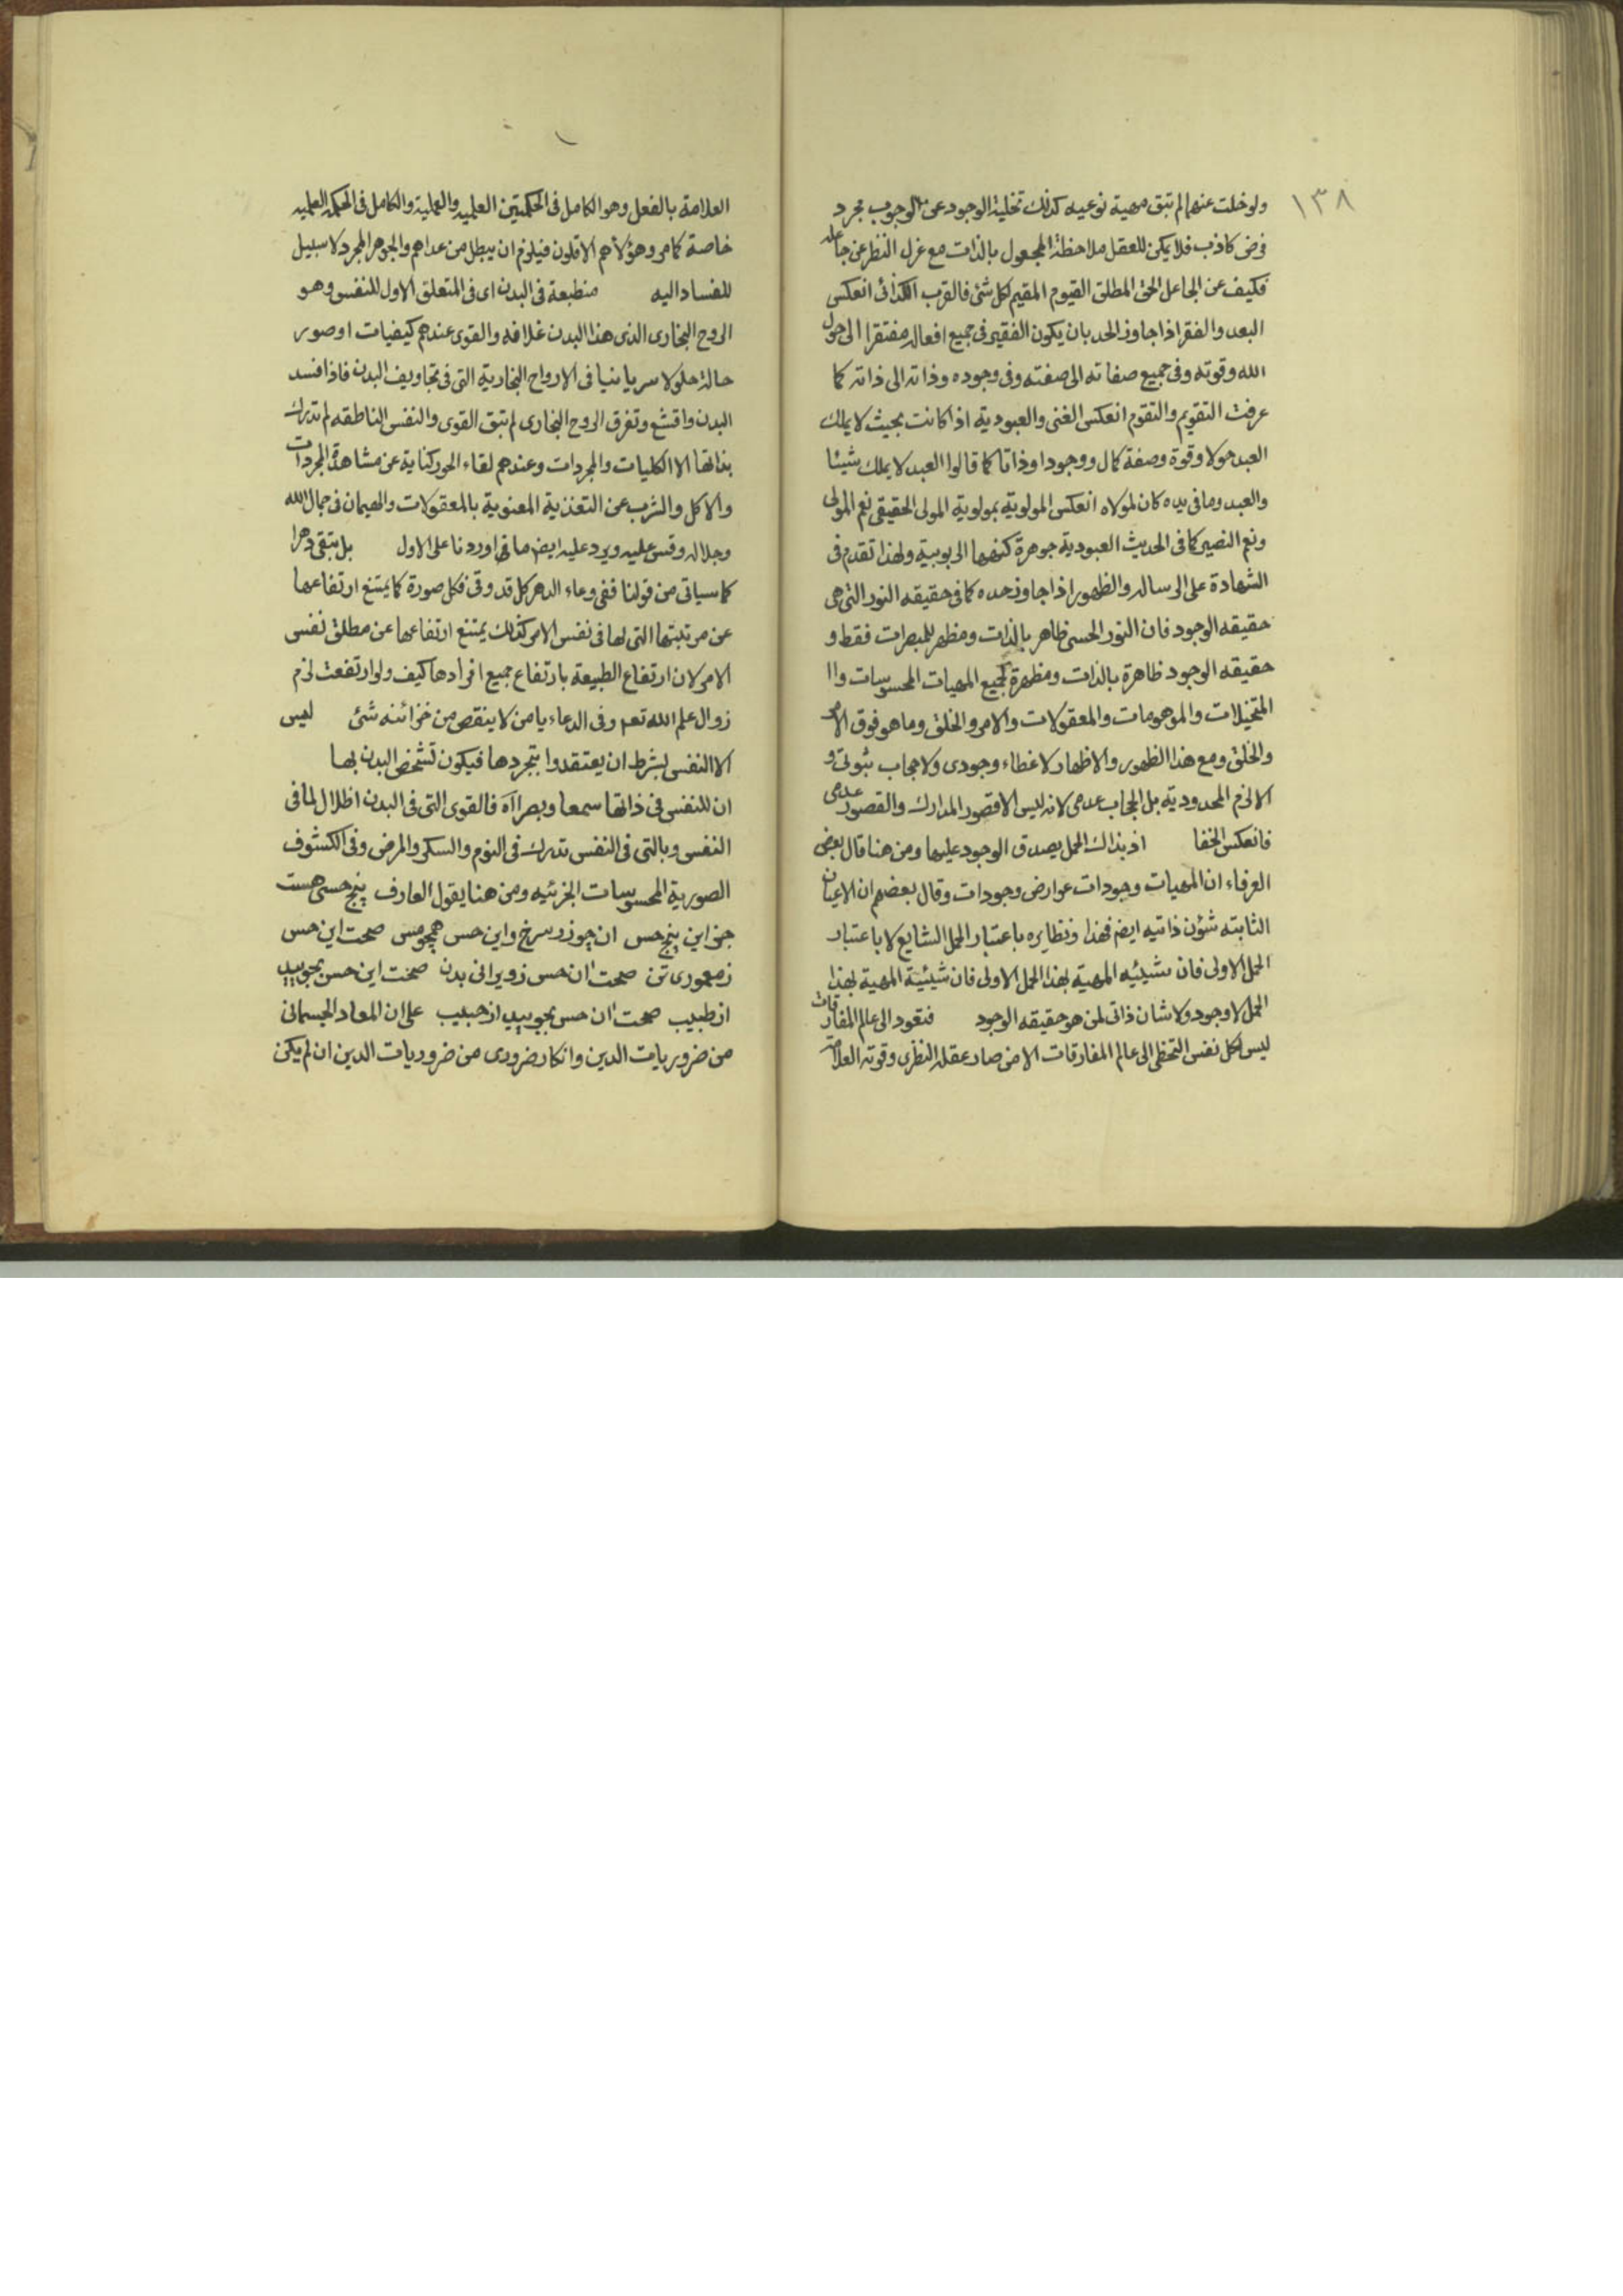 ١٣٨
ولو خلت عنهما لم تبق مهية نوعيه كذلك تخلية الوجود عن الوجوب مجرد
فرض كاذب فلا يمكن للعقل ملاحظة المجعول بالذات مع عزل النظر عن جاعله
فكيف عن الجاعل الحق المطلق القيوم المقيم لكل شئ فالقرب الكذائى انعكس
البعد والفقر اذا جاوز الحد بان يكون الفقير فى جميع افعاله مفتقرا الى حول
الله وقوته وفى جميع صفاته الى صفته وفى وجوده وذاته الى ذاته كما
عرفت التقويم والتقوم انعكس الغنى والعبودية اذا كانت بحيث لا يملك
العبد حولا وقوة وصفة كمال ووجودا وذاتا كما قالوا العبد لا يملك شيئا
والعبد وما فى يده كان لمولاه انعكس المولوية بمولوية المولى الحقيقى نعم المولى
ونعم النصير كما فى الحديث العبودية جوهرة كنهها الربوبية ولهذا تقدم فى
الشهادة على الرساله والظهور اذا جاوز حده كما فى حقيقه النور التى هى
حقيقه الوجود فان النور الحسى ظاهر بالذات ومظهر للمبصرات فقط و
حقيقه الوجود ظاهرة بالذات ومظهرة لجميع المهيات المحسوسات وا
المتخيلات والموهومات والمعقولات والامر والخلق وما هو فوق الامر
والخلق ومع هذا الظهور والاظهار لا غطاء وجودى ولا حجاب ثبوتى و
الا لزم المحدودية بل الحجاب عدمى لانه ليس الا قصور المدارك والقصور عدمى
فانعكس الخفا اذ بذاك الحمل يصدق الوجود عليها ومن هنا قال بعض
العرفاء ان المهيات وجودات عوارض وجودات وقال بعضهم ان الاعيان
الثابته شؤن ذاتيه ايض فهذا ونظايره باعتبار الحمل الشايع لا باعتبار
الحمل الاولى فان شيئيه المهية بهذا الحمل الاولى فان شيئية المهية بهذا
الحمل لا وجود ولا شان ذاتى لمن هو حقيقه الوجود فتعود الى عالم المفارقات
ليس لكل نفس التخطى الى عالم المفارقات الا من صار عقله النظرى وقوته العلامة
العلامة بالفعل وهو الكامل فى الحكمتين العلميه والعملية والكامل فى الحكمه العلميه
خاصة كما مر وهؤلاء هم الاقلون فيلزم ان يبطل من عداهم والجوهر المجرد لا سبيل
للفساد اليه منطبعة فى البدن اى فى المتعلق الاول للنفس وهو
الروح البخارى الذى هذا البدن غلافه والقوى عندهم كيفيات او صور
حالة حلولا سريانيا فى الارواح البخارية التى فى تجاويف البدن فاذا فسد
البدن واقشع وتفرق الروح البخارى لم تبق القوى والنفس الناطقه لم تدرك
بذاتها الا الكليات والمجردات وعندهم لقاء الحور كناية عن مشاهدة المجردات
والاكل والشرب عن التغذية المعنوية بالمعقولات والهيمان فى جمال الله
وجلاله وقس عليه ويرد عليه ايض ما اوردنا على الاول بل تبقى دهرا
كما سياتى من قولنا ففى وعاء الدهر كل قد وقى فكل صورة كما يمتنع ارتفاعها
عن مرتبتها التى لها فى نفس الامر كذلك يمتنع ارتفاعها عن مطلق نفس
الامر لان ارتفاع الطبيعة بارتفاع جميع افرادها كيف ولو ارتفعت لزم
زوال علم الله تعم وفى الدعاء يا من لا ينقص من خزائنه شئ ليس
الا النفس بشرط ان يعتقدوا بتجردها فيكون تشخص البدن بها
ان للنفس فى ذاتها سمعا وبصرا آه فالقوى التى فى البدن اظلال لما فى
النفس وبالتى فى النفس تدرك فى النوم والسكر والمرض وفى الكشوف
الصورية المحسوسات الجزئيه ومن هنا يقول العارف پنج حسى هست
جز اين پنج حس ان چو زر سرخ واين حس همچو مس صحت اين حس
ز معمورى تن صحت ان حس ز ويرانى بدن صحت اين حس بجوييد
از طبيب صحت ان حس بجوييد از حبيب على ان المعاد الجسمانى
من ضروريات الدين وانكار ضرورى من ضروريات الدين ان لم يكن